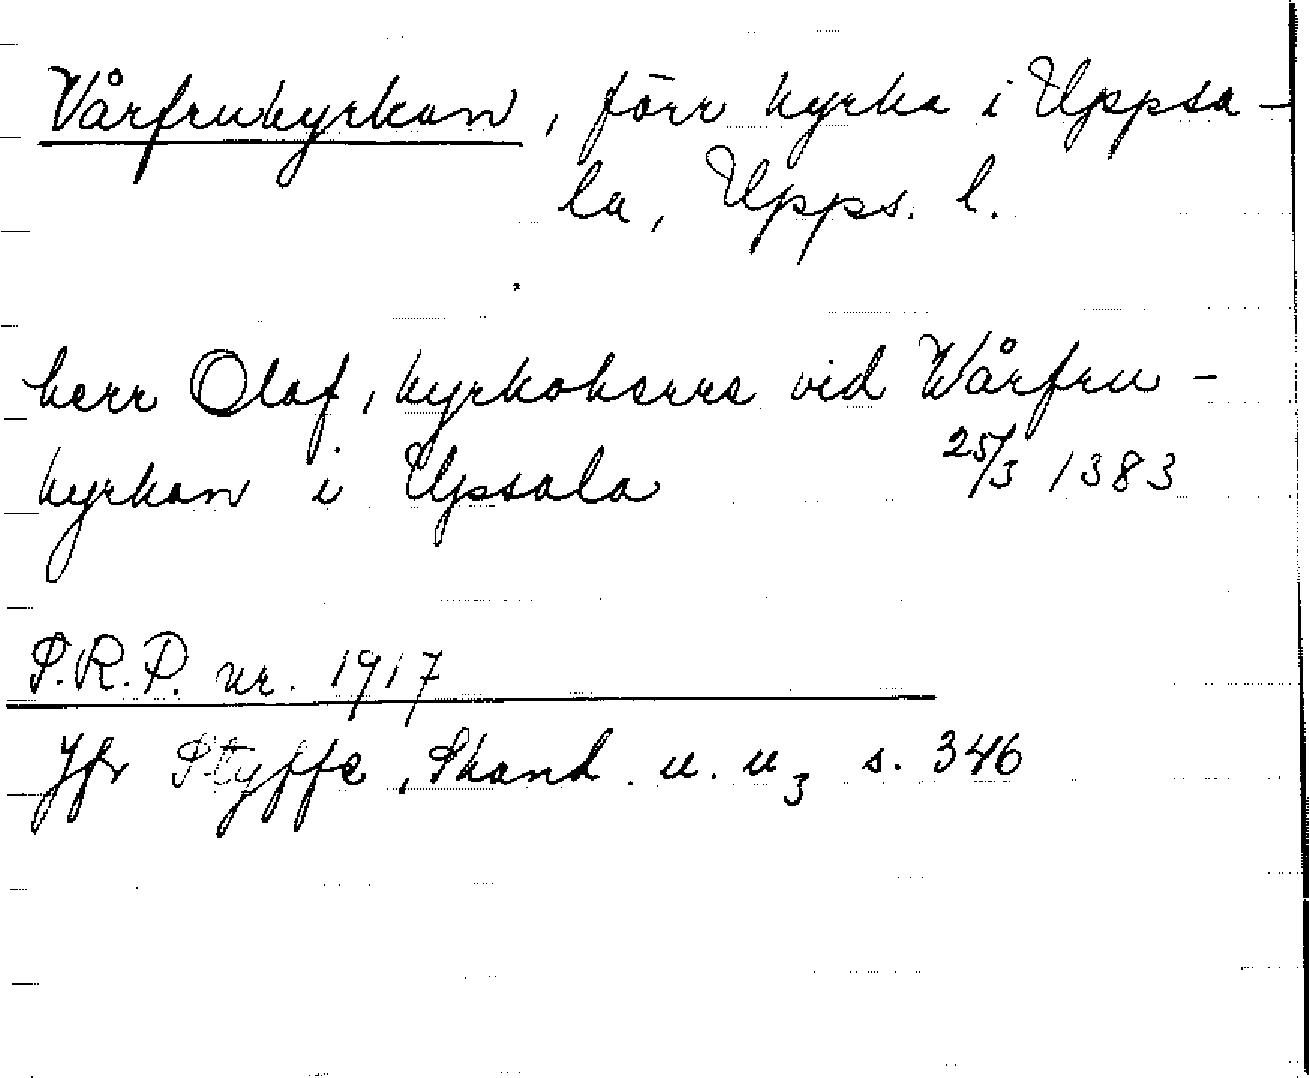 Vårfrukyrkan, förr kyrka i Uppsa-
la, Upps. l.
herr Olaf, kyrkoherre vid Wårfru-
kyrkan i Upsala 25/3 1383
S.R.P. nr. 1917
Jfr Styffe, Skand. u. u3 s. 346